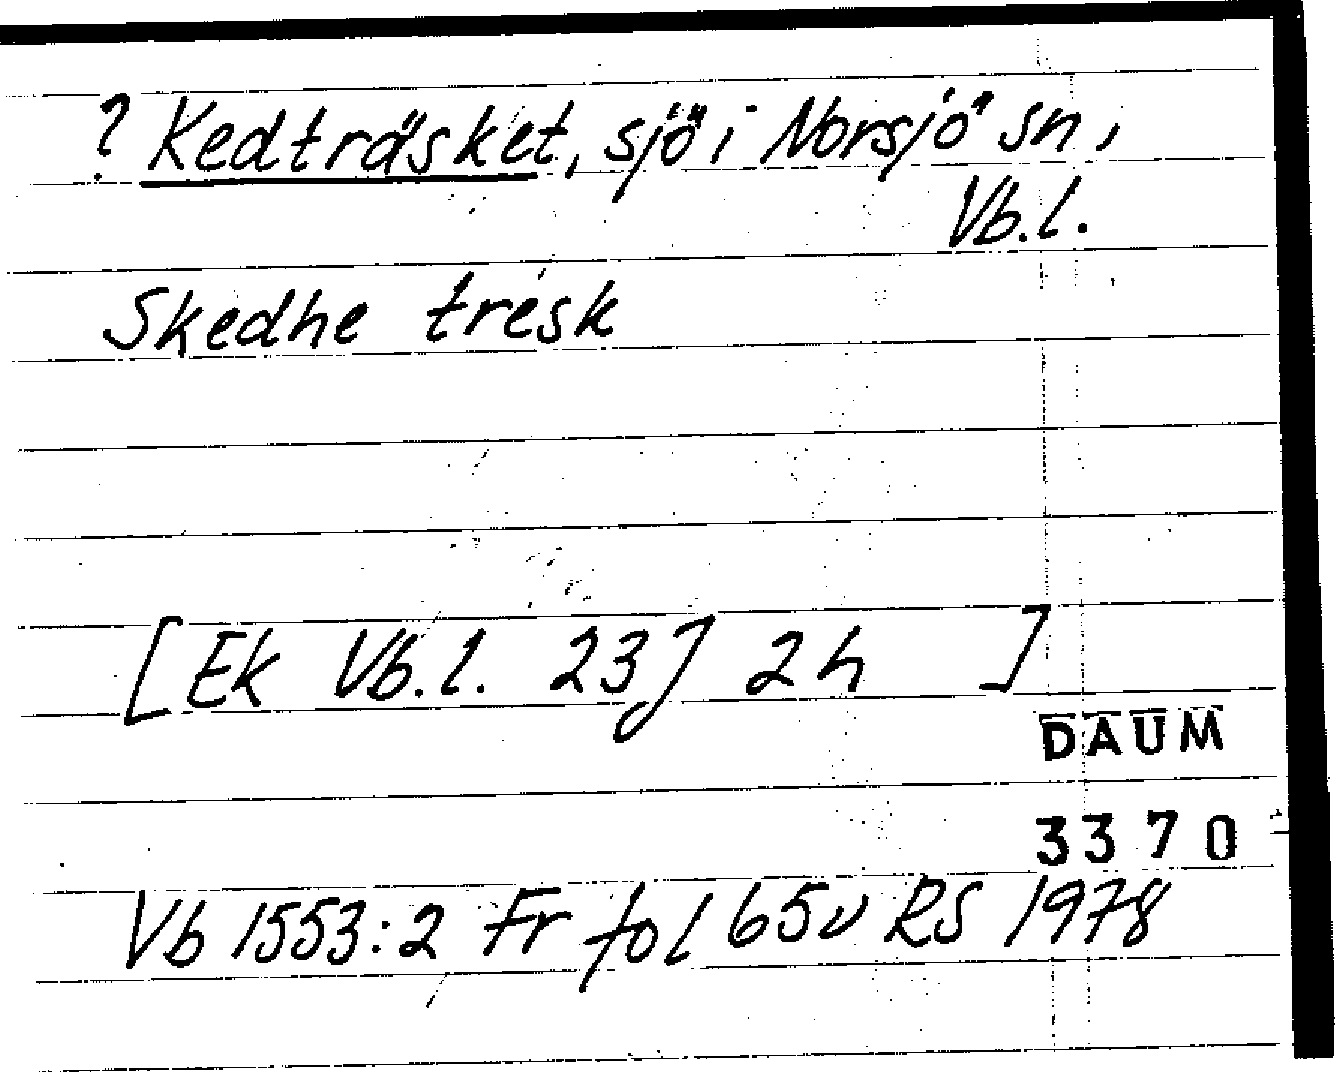 ? Kedträsket, sjö i Norsjö sn,
Vb.l.
Skedhe tresk
[Ek Vb.l. 23J 2h ]
DAUM
3370
Vb 1553:2 Fr fol 65v RS 1978